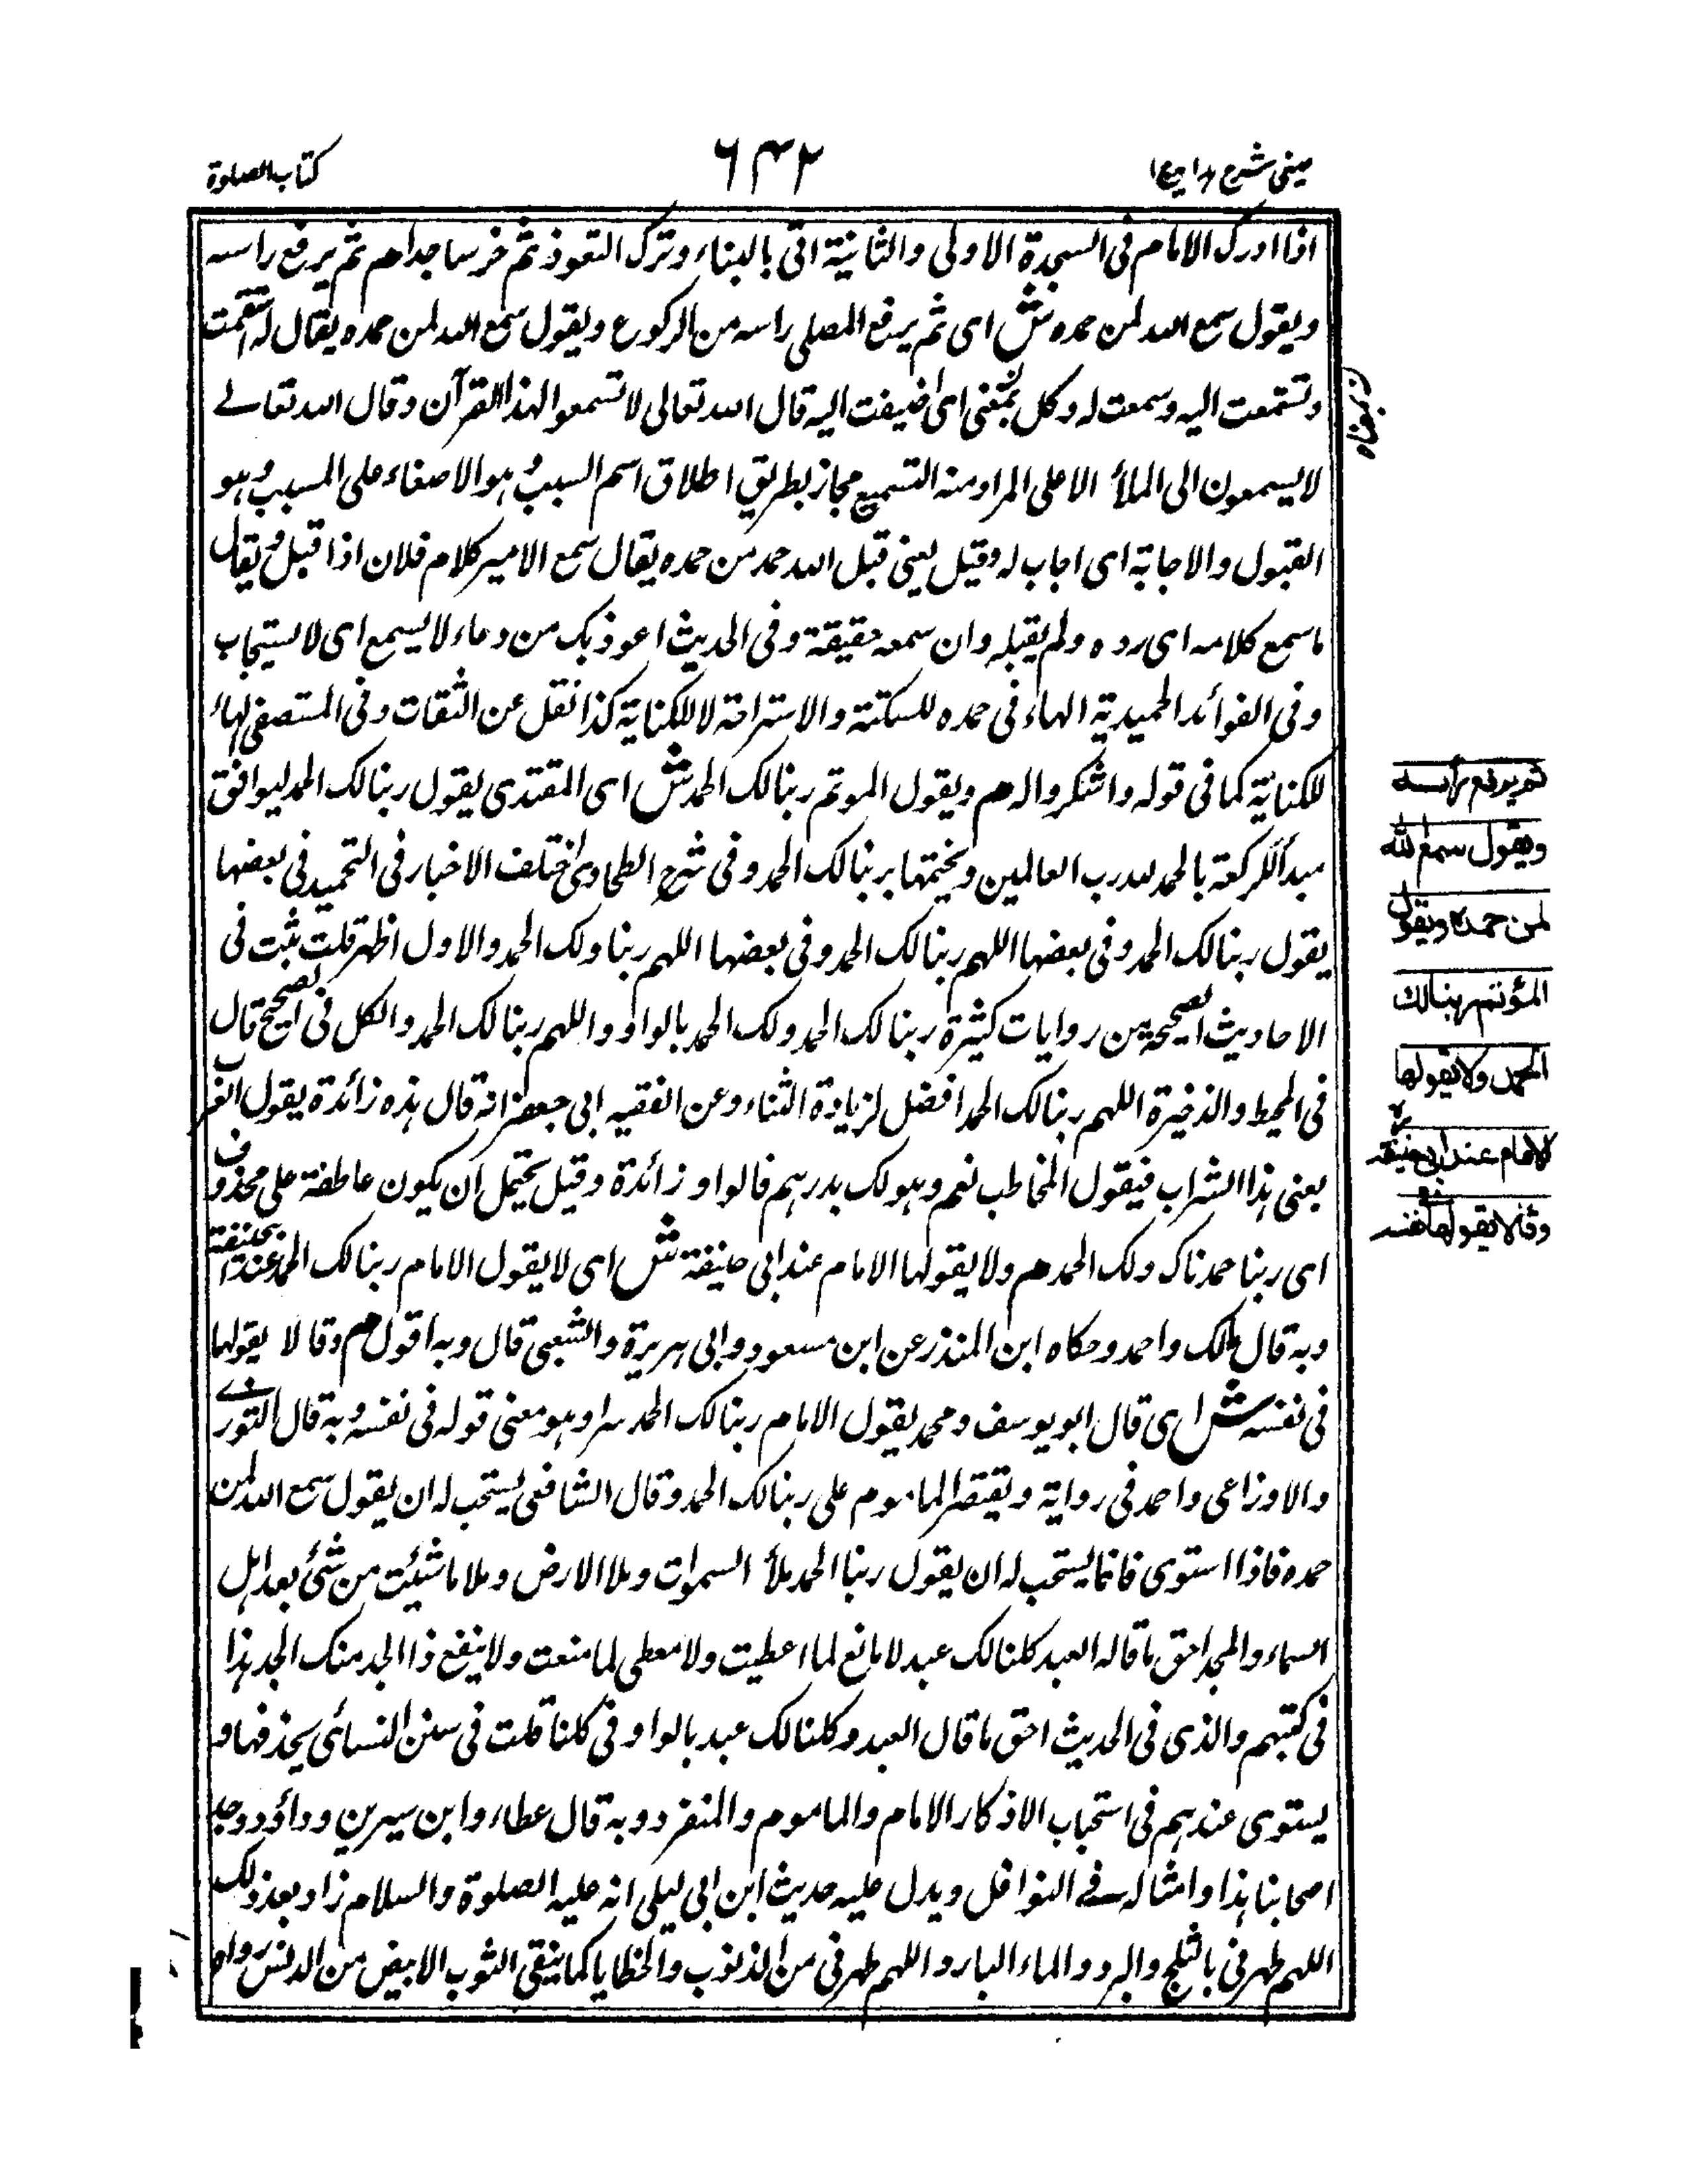 عینی شرح ہدایہ ج ۱
۶۴۲
کتاب الصلوة
اذا ادرک الامام فی السجدة الاولی والثانیة اتی بالثناء وترک التعوذ ثم خر ساجدا م ثم یرفع راسه
ویقول سمع الله لمن حمده ش ای ثم یرفع المصلی راسه من الرکوع ویقول سمع الله لمن حمده یقال استمعت
وتسمعت الیه وسمعت له وکل بمعنی ای اضیفت الیه قال الله تعالی لا تسمعوا لهذا القرآن وقال الله تعالے
لا یسمعون الی الملأ الاعلی المراد منه التسمیع مجاز بطریق اطلاق اسم السبب وهو الاصغاء علی المسبب وهو
القبول والاجابة ای اجاب له وقیل یعنی قبل الله حمد من حمده یقال سمع الامیر کلام فلان اذا قبل ویقال
ما سمع کلامه ای رده ولم یقبله وان سمعه حقیقة وفی الحدیث اعوذ بک من دعاء لا یسمع ای لا یستجاب
وفی الفوائد الحمیدیة الهاء فی حمده للسکتة والاستراحة لا للکنایة کذا نقل عن الثقات وفی المستصفی الهاء
للکنایة کما فی قوله واشکروا له م ویقول الموتم ربنا لک الحمد ش ای المقتدی یقول ربنا لک الحمد لیوافق
مبدأ الرکعة بالحمد لله رب العالمین ویختمها بربنا لک الحمد وفی شرح الطحاوی اختلف الاخبار فی التحمید فی بعضها
یقول ربنا لک الحمد وفی بعضها اللهم ربنا لک الحمد وفی بعضها اللهم ربنا ولک الحمد والاول اظهر قلت ثبت فی
الاحادیث الصحیحة من روایات کثیرة ربنا لک الحمد ولک الحمد بالواو واللهم ربنا لک الحمد والکل فی الصحیح قال
فی المحیط والذخیرة اللهم ربنا لک الحمد افضل لزیادة الثناء وعن الفقیه ابی جعفر انه قال هذه زائدة یقول العرب
بعنی هذا الشراب فیقول المخاطب نعم وهو لک بدرهم فالواو زائدة وقیل یحتمل ان یکون عاطفة علی محذوف
ای ربنا حمدناک ولک الحمد م ولا یقولها الامام عند ابی حنیفة ش ای لا یقول الامام ربنا لک الحمد عند ابی حنیفة
وبه قال مالک واحمد وحکاه ابن المنذر عن ابن مسعود وابی هریرة والشعبی قال وبه اقول م وقالا یقولها
فی نفسه ش ای قال ابو یوسف ومحمد یقول الامام ربنا لک الحمد سرا وهو معنی قوله فی نفسه وبه قال الثوری
والاوزاعی واحمد فی روایة ویقتصر الماموم علی ربنا لک الحمد وقال الشافعی یستحب له ان یقول سمع الله لمن
حمده فاذا استوی قائما یستحب له ان یقول ربنا الحمد ملأ السموات وملا الارض وملا ما شئت من شئ بعد اهل
السماء والمجد احق ما قاله العبد کلنا لک عبد لا مانع لما اعطیت ولا معطی لما منعت ولا ینفع ذا الجد منک الجد هذا
فی کتبهم والذی فی الحدیث احق ما قال العبد وکلنا لک عبد بالواو فی کلنا قلت فی سنن النسائی بحذفها و
یستوی عندهم فی استحباب الاذکار الامام والماموم والمنفرد وبه قال عطاء وابن سیرین وداؤد وجل
اصحابنا هذا وامثاله فی النوافل ویدل علیه حدیث ابن ابی لیلی انه علیه الصلوة والسلام زاد بعد ذلک
اللهم طهرنی بالثلج والبرد والماء البارد اللهم طهرنی من الذنوب والخطایا کما ینقی الثوب الابیض من الدنس رواه
ثم یرفع رأسه
ویقول سمع الله
لمن حمده ویقول
المؤتم ربنا لک
الحمد ولا یقولها
الامام عند ابی حنیفة
وقالا یقولها فی نفسه